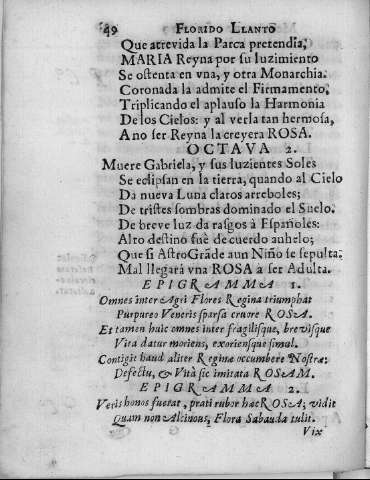 49 FLORIDO LLANTO
Que atrevida la Parca pretendia;
MARIA Reyna por su luzimiento
Se ostenta en vna, y otra Monarchia.
Coronada la admite el Firmamento,
Triplicando el aplauso la Harmonia
De los Cielos: y al verla tan hermosa,
A no ser Reyna la creyera ROSA.
OCTAVA 2.
Muere Gabriela, y sus luzientes Soles
Se eclipsan en la tierra, quando al Cielo
Da nueva Luna claros arreboles;
De tristes sombras dominado el Suelo.
De breve luz da rasgos à Españoles:
Alto destino fuè de cuerdo anhelo;
Que si Astro Grãde aun Niño se sepulta.
Mal llegará vna ROSA a ser Adulta.
EPIGRAMMA 1.
Omnes inter Agri Flores Regina triumphat
Purpureo Veneris sparsa cruore ROSA.
Et tamen huic omnes inter fragilisque, brevisque
Vita datur moriens, exoriensque simul.
Contigit haud aliter Reginæ occumbere Nostræ:
Defectu, & Vità sic imitata ROSAM.
EPIGRAMMA 2.
Veris honos fuerat, prati rubor hæc ROSA; vidit
Quam non Alcinous, Flora Sabauda tulit.
Vix